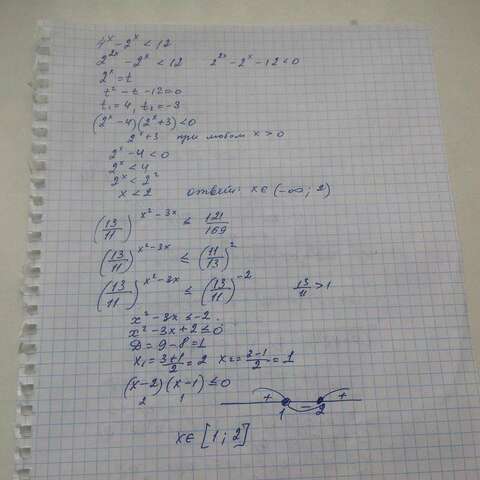 4ˣ - 2ˣ < 12
2²ˣ - 2ˣ < 12 2²ˣ - 2ˣ - 12 < 0
2ˣ = t
t² - t - 12 = 0
t₁ = 4, t₂ = -3
(2ˣ - 4)(2ˣ + 3) < 0
2ˣ + 3 при любом x > 0
2ˣ - 4 < 0
2ˣ < 4
2ˣ < 2²
x < 2 ответ: x ∈ (-∞; 2)
(13/11)^(x² - 3x) ≤ 121/169
(13/11)^(x² - 3x) ≤ (11/13)²
(13/11)^(x² - 3x) ≤ (13/11)⁻² 13/11 > 1
x² - 3x ≤ -2
x² - 3x + 2 ≤ 0
D = 9 - 8 = 1
x₁ = (3+1)/2 = 2 x₂ = (3-1)/2 = 1
(x - 2)(x - 1) ≤ 0
2 1
+ - +
1 2
x ∈ [1; 2]